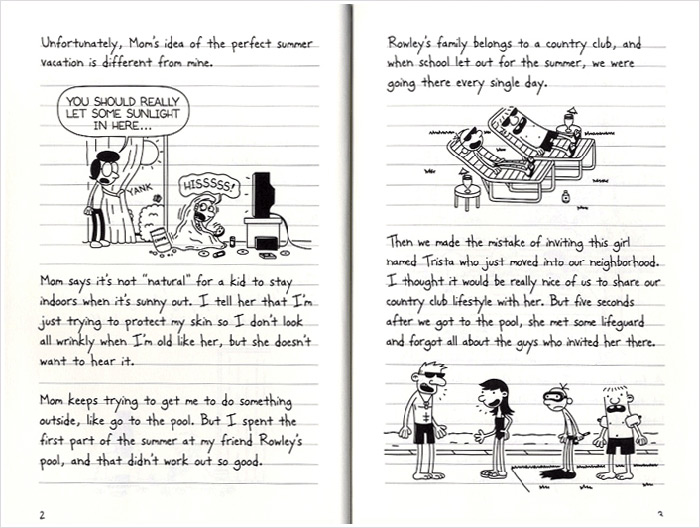 Unfortunately, Mom's idea of the perfect summer
vacation is different from mine.
YOU SHOULD REALLY
LET SOME SUNLIGHT
IN HERE...
YANK
HISSSSS!
Mom says it's not "natural" for a kid to stay
indoors when it's sunny out. I tell her that I'm
just trying to protect my skin so I don't look
all wrinkly when I'm old like her, but she doesn't
want to hear it.
Mom keeps trying to get me to do something
outside, like go to the pool. But I spent the
first part of the summer at my friend Rowley's
pool, and that didn't work out so good.
2
Rowley's family belongs to a country club, and
when school let out for the summer, we were
going there every single day.
Then we made the mistake of inviting this girl
named Trista who just moved into our neighborhood.
I thought it would be really nice of us to share our
country club lifestyle with her. But five seconds
after we got to the pool, she met some lifeguard
and forgot all about the guys who invited her there.
3